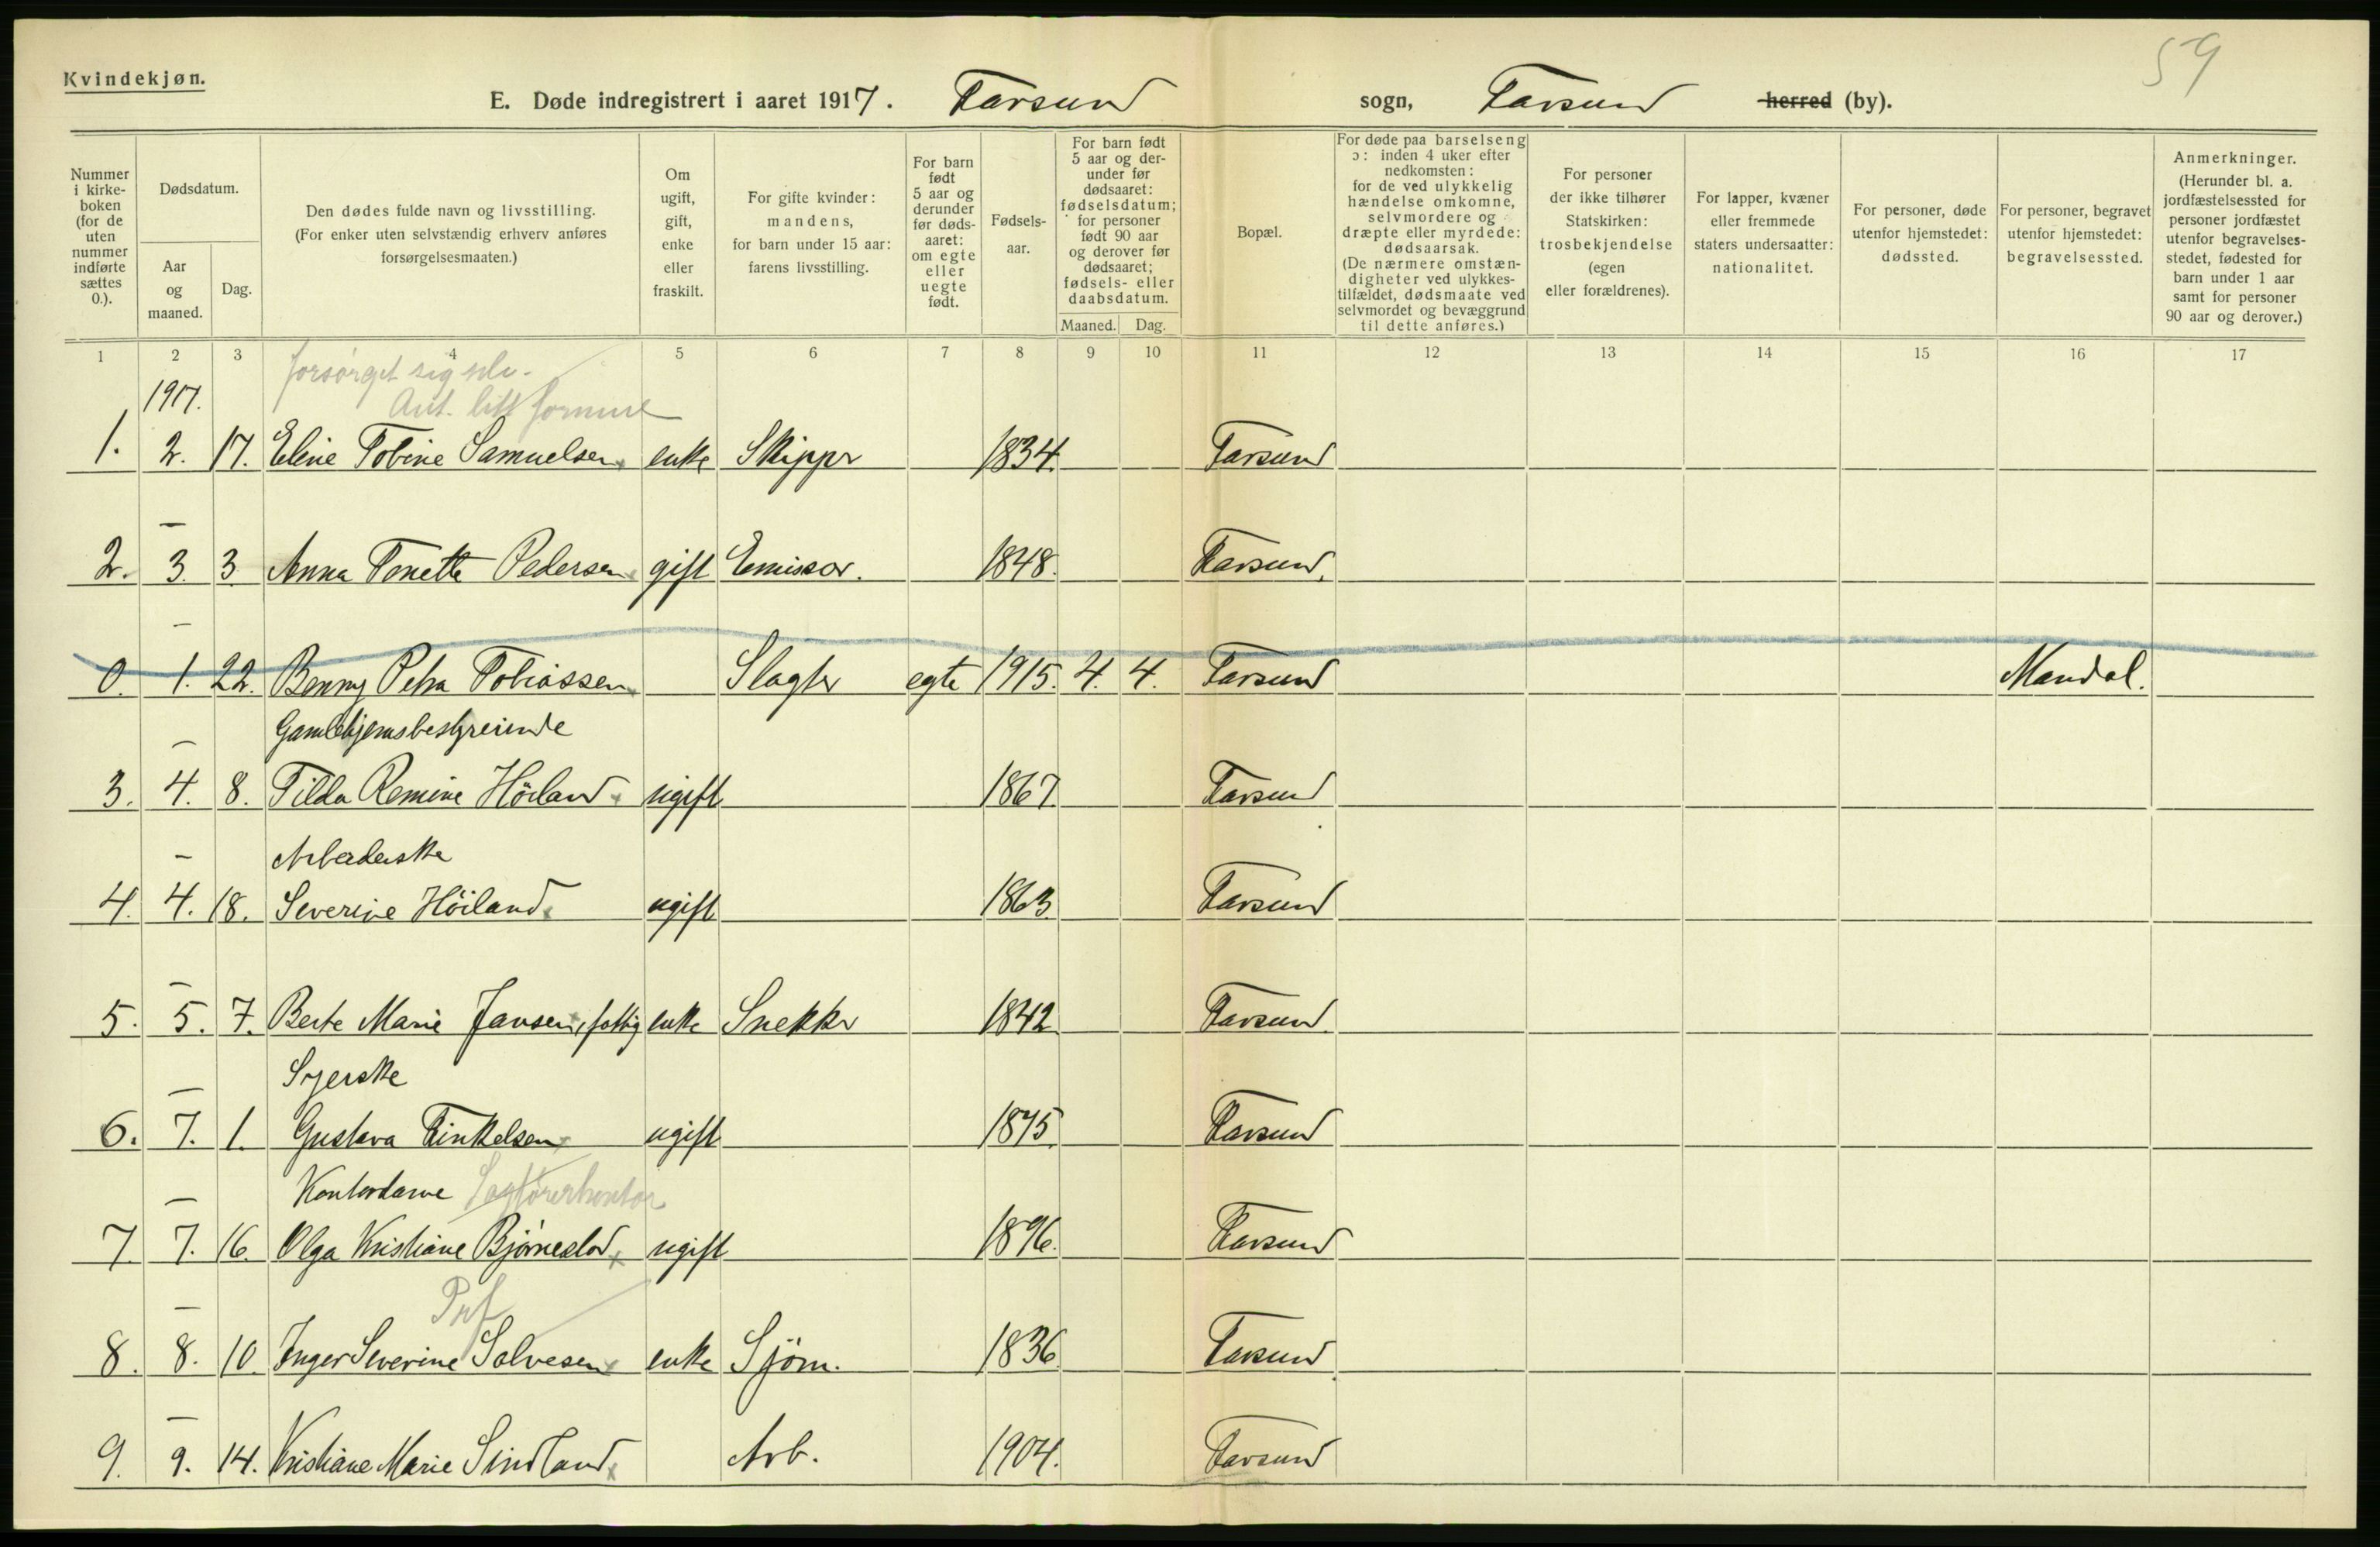 59
Kvindekjøn.
E. Døde indregistrert i aaret 1917. Farsund sogn, Farsund herred (by).
Nummer i kirkeboken (for de uten nummer indførte sættes 0.).
Dødsdatum.
Aar og maaned.
Dag.
Den dødes fulde navn og livsstilling. (For enker uten selvstændig erhverv anføres forsørgelsesmaaten.)
Om ugift, gift, enke eller fraskilt.
For gifte kvinder: mandens, for barn under 15 aar: farens livsstilling.
For barn født 5 aar og derunder før dødsaaret: om egte eller uegte født.
Fødselsaar.
For barn født 5 aar og derunder før dødsaaret: fødselsdatum; for personer født 90 aar og derover før dødsaaret; fødsels- eller daabsdatum.
Maaned. Dag.
Bopæl.
For døde paa barselseng ɔ: inden 4 uker efter nedkomsten: for de ved ulykkelig hændelse omkomne, selvmordere og dræpte eller myrdede: dødsaarsak. (De nærmere omstændigheter ved ulykkestilfældet, dødsmaate ved selvmordet og bevæggrund til dette anføres.)
For personer der ikke tilhører Statskirken: trosbekjendelse (egen eller forældrenes).
For lapper, kvæner eller fremmede staters undersaatter: nationalitet.
For personer, døde utenfor hjemstedet: dødssted.
For personer, begravet utenfor hjemstedet: begravelsessted.
Anmerkninger. (Herunder bl. a. jordfæstelsessted for personer jordfæstet utenfor begravelsesstedet, fødested for barn under 1 aar samt for personer 90 aar og derover.)
1 2 3 4 5 6 7 8 9 10 11 12 13 14 15 16 17
forsørget sig selv.
1917. Ant. litt formue
1. 2. 17. Eline Tobine Samuelsen enke Skipper 1834. Farsund
2. 3. 3. Anna Tonette Pedersen gift Emissær. 1848. Farsund.
0. 1. 22. Benny Petra Tobiassen Slagter egte 1915. 4. 4. Farsund Mandal.
Gamlehjemsbestyrerinde
3. 4. 8. Tilda Remine Höiland ugift 1867. Farsund
Arbeiderske
4. 4. 18. Severine Höiland ugift 1863. Farsund
5. 5. 7. Berte Marie Jansen, fattig enke Snekker 1842 Farsund.
Syerske
6. 7. 1. Gustava Finkelsen ugift 1875. Farsund
Kontordame Sagførerkontor
7. 7. 16. Olga Kristiane Bjørnestad ugift 1896. Farsund
Prf
8. 8. 10. Inger Severine Salvesen enke Sjøm. 1836. Farsund
9. 9. 14. Kristiane Marie Sindland Arb. 1904. Farsund